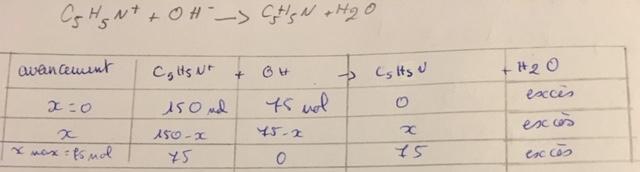 C5H5N+ + OH- -> C5H5N + H2O
avancement C5H5N+ + OH -> C5H5N + H2O
x=0 150 mol 75 mol 0 excès
x 150-x 75-x x excès
x max = 75 mol 75 0 75 excès